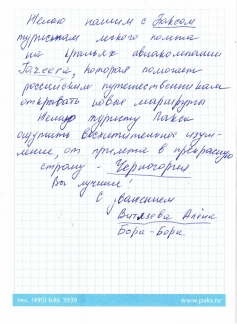 Желаю нашим с Паксом
туристам легкого полета
на крыльях авиакомпании
которая помогает
российским путешественникам
открывать новые маршруты
Желаю туристу Пакса
ощутить восхитительное изум-
ление, от прилета в прекрасную
страну - Черногория
Вы лучшие!
С уважением
Витязева Алёна
Бора-Бора
тел. (495) 646 3939
www.paks.ru